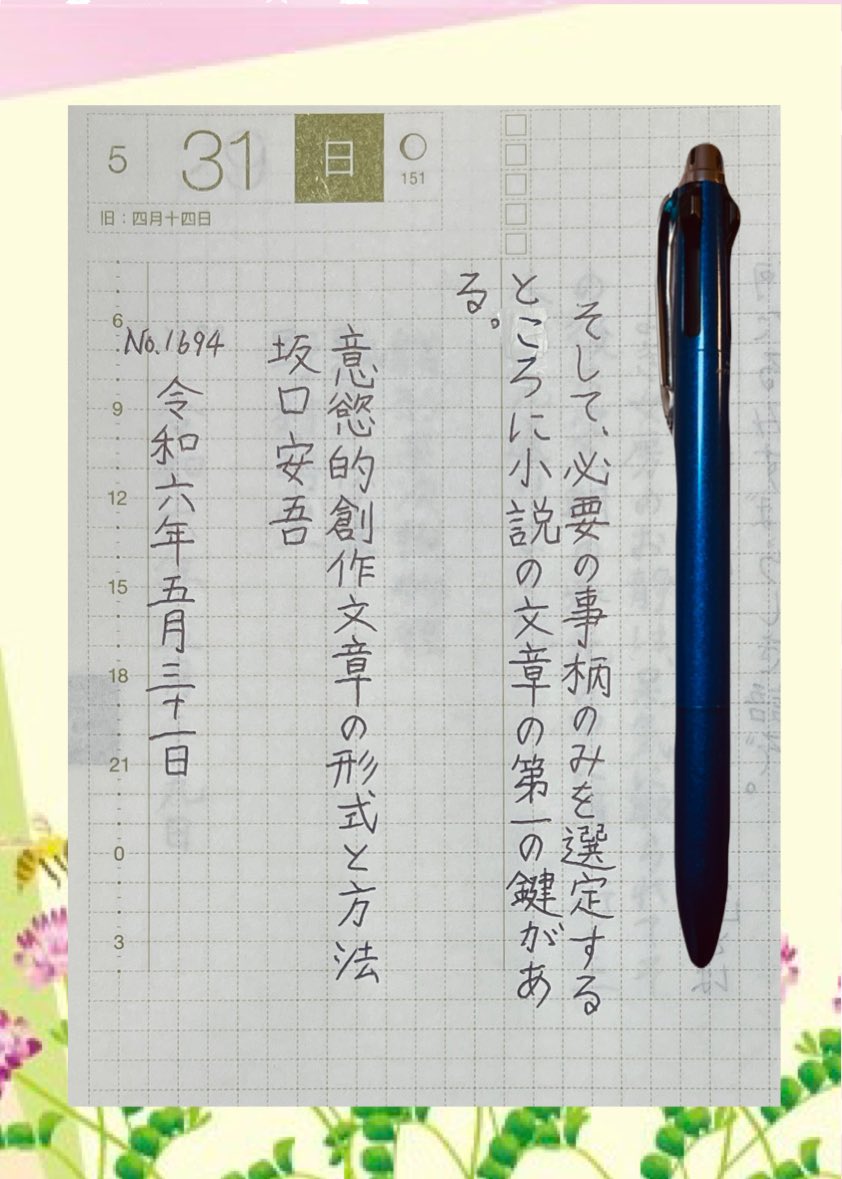 5 31 日
151
旧：四月十四日
そして、必要の事柄のみを選定する
ところに小説の文章の第一の鍵があ
る。
意慾的創作文章の形式と方法
坂口安吾
No.1694
令和六年五月三十一日
6
9
12
15
18
21
0
3